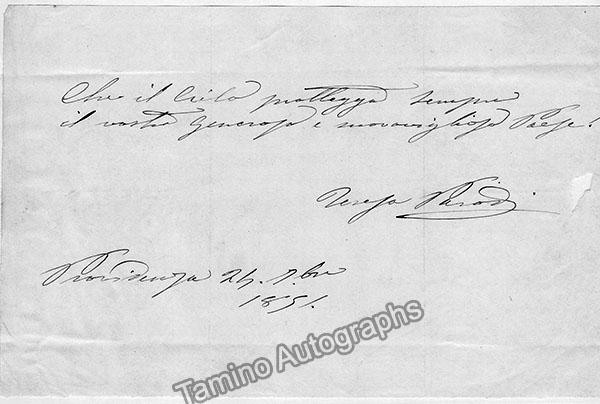 Che il Cielo protegga sempre
il vostro generoso e maraviglioso Paese!
Teresa Parodi
Providenza 24. 7.bre
1851.
Tamino Autographs